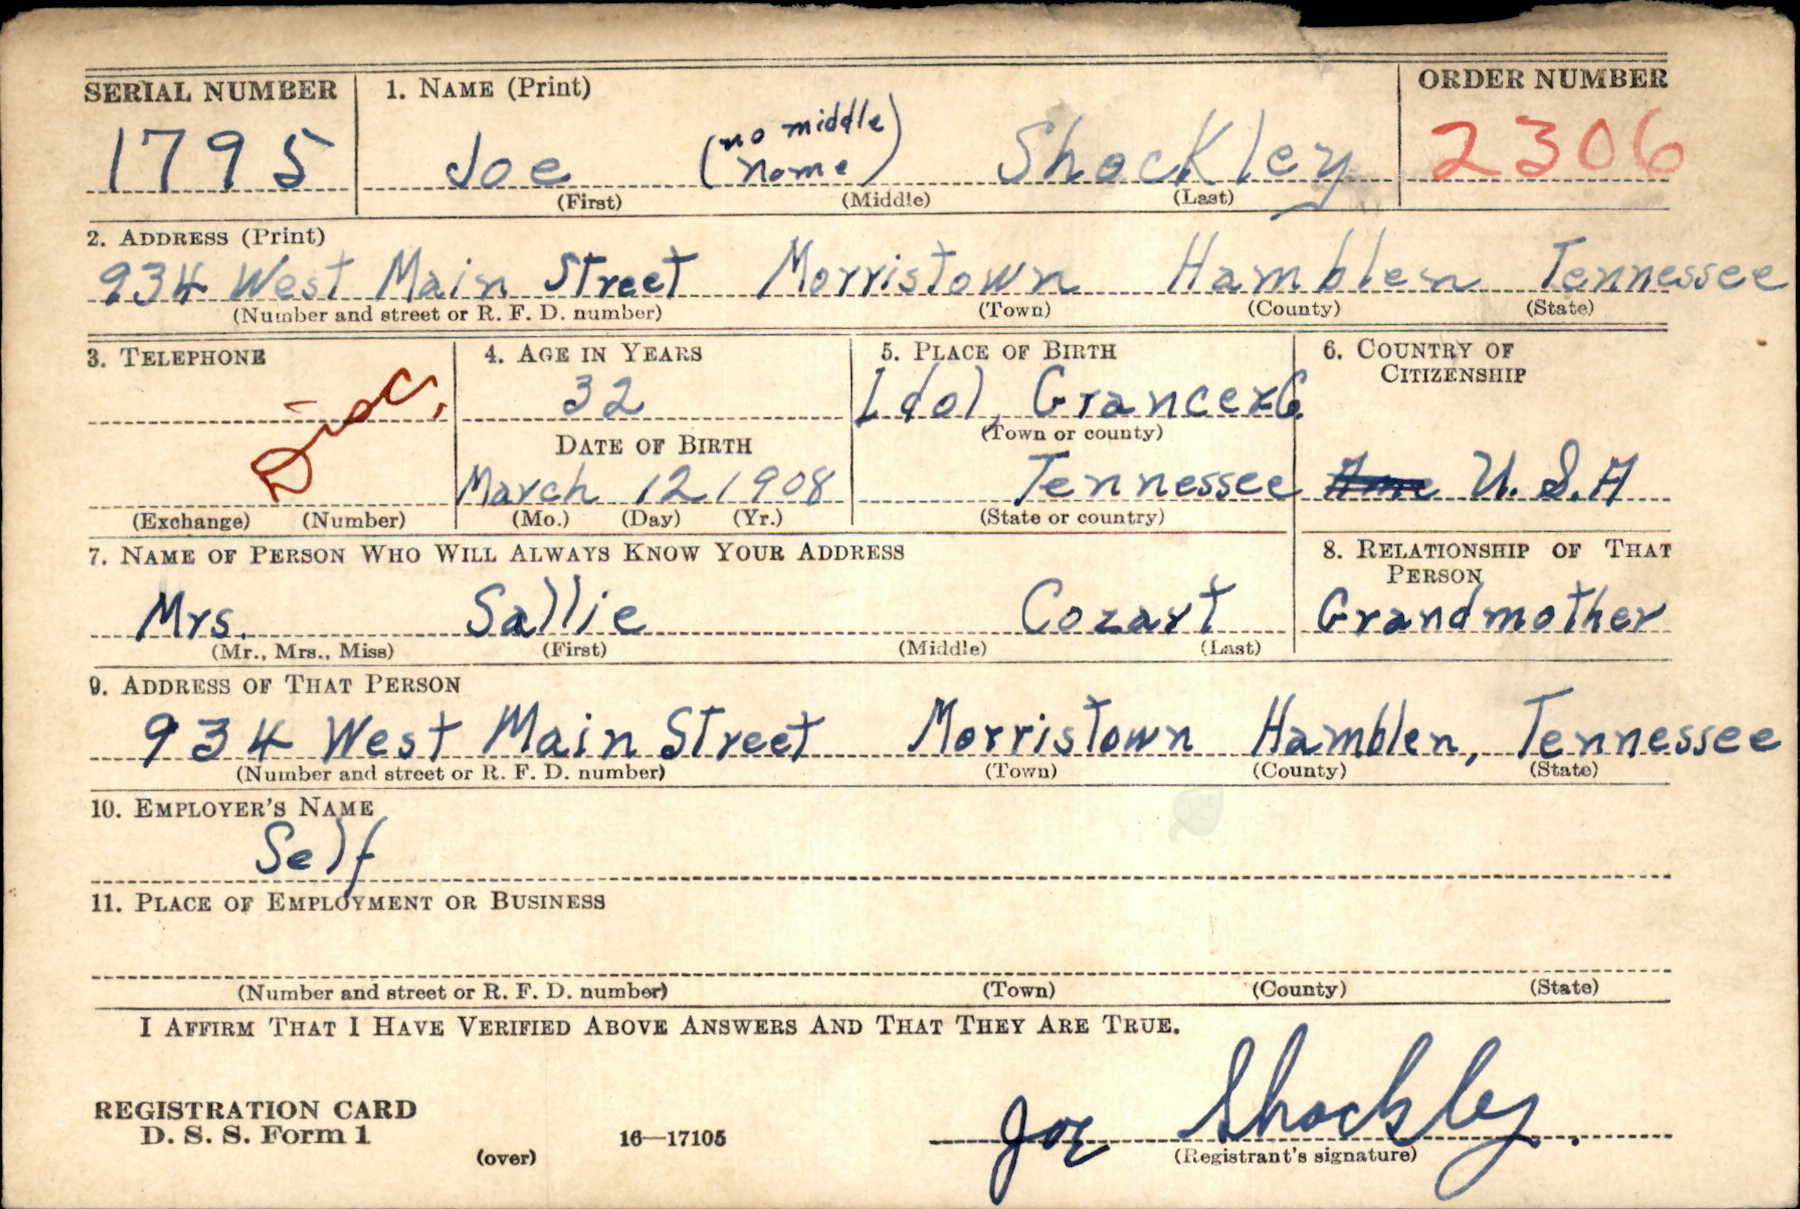 SERIAL NUMBER 1. NAME (Print) ORDER NUMBER
1795 Joe (no middle name) Shockley 2306
(First) (Middle) (Last)
2. ADDRESS (Print)
934 West Main Street Morristown Hamblen Tennessee
(Number and street or R. F. D. number) (Town) (County) (State)
3. TELEPHONE 4. AGE IN YEARS 5. PLACE OF BIRTH 6. COUNTRY OF
CITIZENSHIP
32 Idol, Grancer Co.
Disc. (Town or county)
DATE OF BIRTH
March 12 1908 Tennessee U.S.A
(Exchange) (Number) (Mo.) (Day) (Yr.) (State or country)
7. NAME OF PERSON WHO WILL ALWAYS KNOW YOUR ADDRESS 8. RELATIONSHIP OF THAT
PERSON
Mrs. Sallie Cozart Grandmother
(Mr., Mrs., Miss) (First) (Middle) (Last)
9. ADDRESS OF THAT PERSON
934 West Main Street Morristown Hamblen, Tennessee
(Number and street or R. F. D. number) (Town) (County) (State)
10. EMPLOYER'S NAME
Self
11. PLACE OF EMPLOYMENT OR BUSINESS
(Number and street or R. F. D. number) (Town) (County) (State)
I AFFIRM THAT I HAVE VERIFIED ABOVE ANSWERS AND THAT THEY ARE TRUE.
REGISTRATION CARD
D. S. S. Form 1 16—17105 Joe Shockley.
(over) (Registrant's signature)